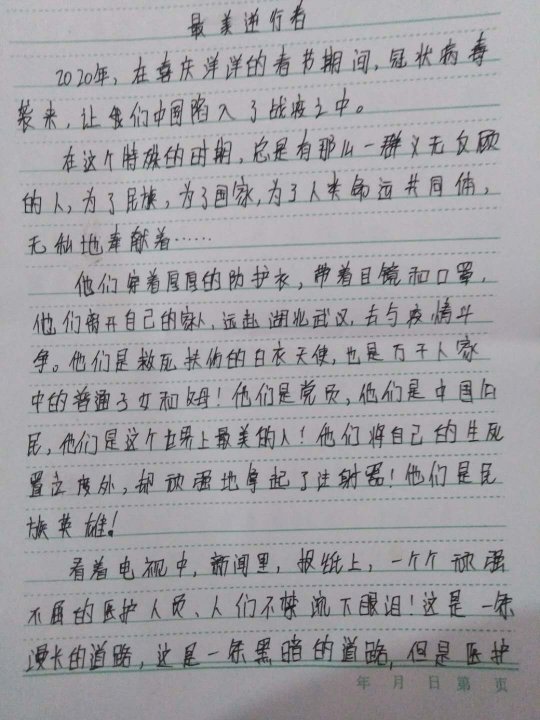 最美逆行者
2020年，在喜庆洋洋的春节期间，冠状病毒
袭来，让我们中国陷入了战疫之中。
在这个特殊的时期，总是有那么一群义无反顾
的人，为了民族，为了国家，为了人类命运共同体，
无私地奉献着……
他们穿着厚厚的防护衣，带着目镜和口罩，
他们离开自己的家人，远赴湖北武汉，去与疫情斗
争。他们是救死扶伤的白衣天使，也是万千人家
中的普通子女和父母！他们是党员，他们是中国公
民，他们是这个世界上最美的人！他们将自己的生死
置之度外，却顽强地拿起了注射器！他们是民
族英雄！
看着电视中，新闻里，报纸上，一个个顽强
不屈的医护人员、人们不禁流下眼泪！这是一条
漫长的道路，这是一条黑暗的道路，但是医护
年 月 日 第 页